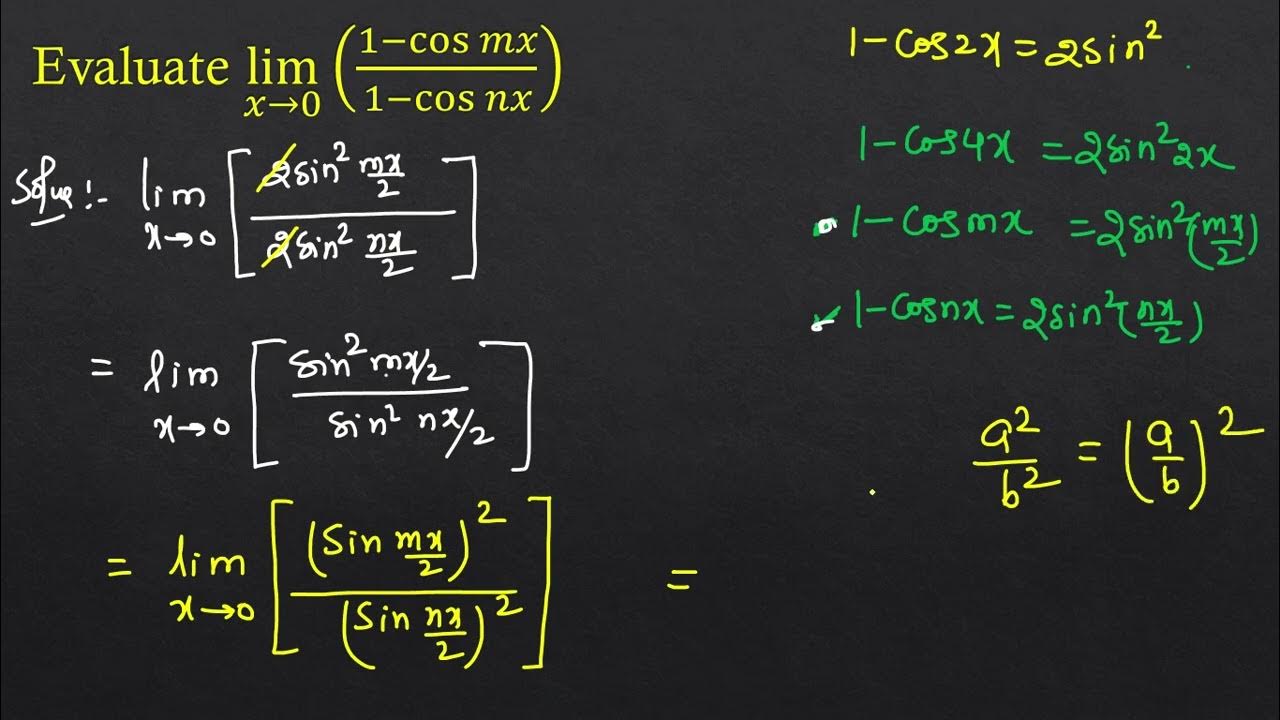 Evaluate lim x→0 (1−cos mx / 1−cos nx)
Solue:- lim x→0 [2sin² mx/2 / 2sin² nx/2]
= lim x→0 [sin² mx/2 / sin² nx/2]
= lim x→0 [(Sin mx/2)² / (Sin nx/2)²] =
1-Cos2x = 2sin²
1-Cos4x = 2sin²2x
1-Cosmx = 2sin²(mx/2)
1-Cosnx = 2sin²(nx/2)
a²/b² = (a/b)²